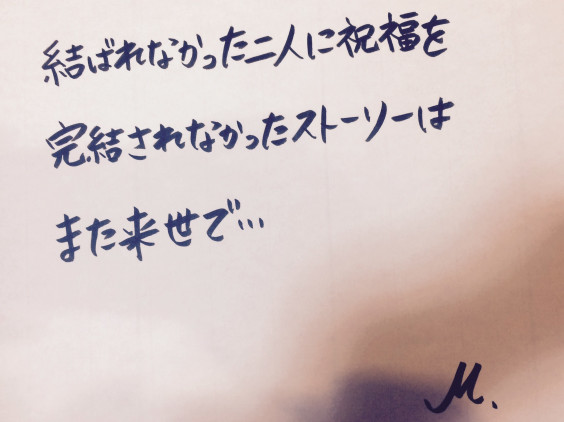 結ばれなかった二人に祝福を
完結されなかったストーリーは
また来世で…
M.